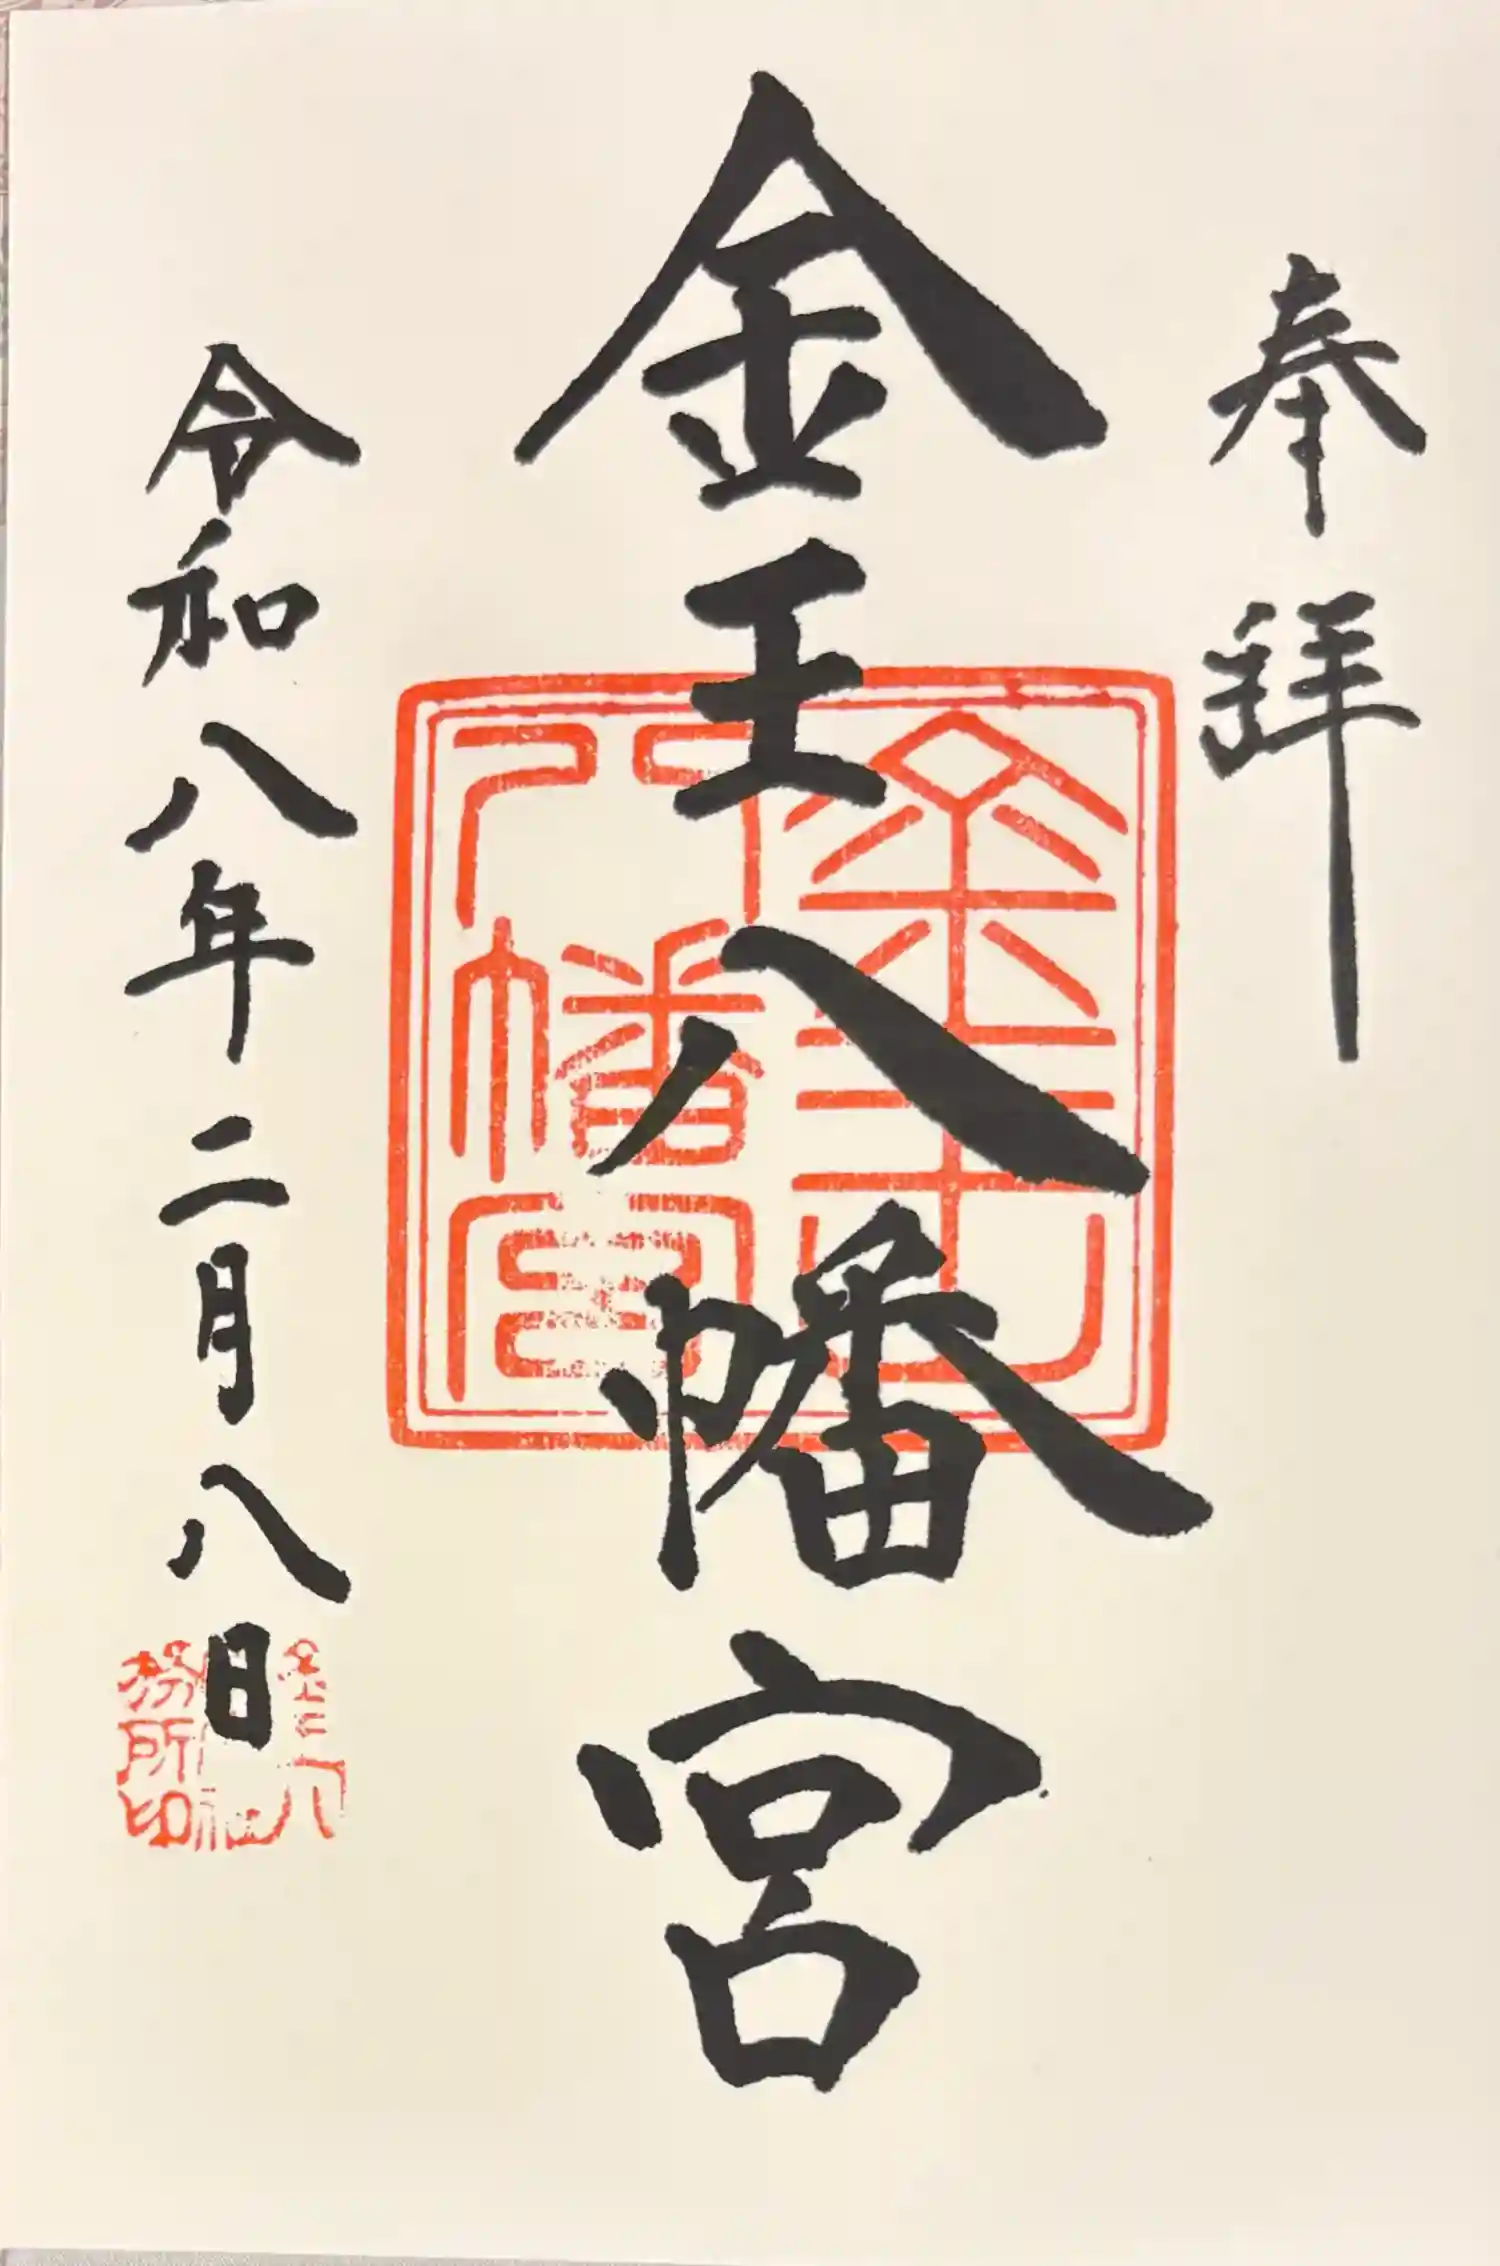 奉拝
金王八幡宮
令和八年二月八日
金王
八幡宮
務所印